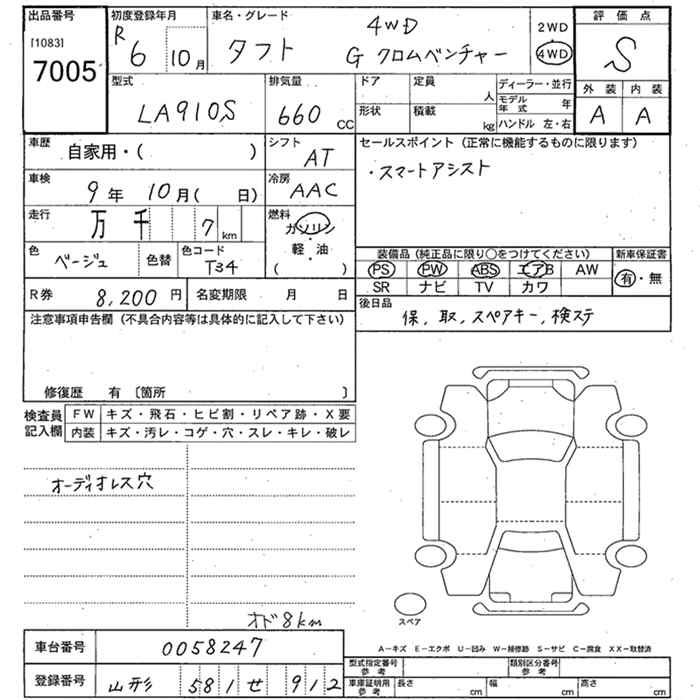 出品番号
[1083]
7005
初度登録年月
R 6 10月
車名・グレード
タフト 4WD
G クロムベンチャー
2WD
4WD
評価点
S
外装 内装
A A
型式
LA910S
排気量
660 CC
ドア
定員
人
形状
積載
kg
ディーラー・並行
モデル年式 年
ハンドル 左・右
車歴
自家用・( )
シフト
AT
セールスポイント (正常に機能するものに限ります)
・スマートアシスト
車検
9年 10月( 日)
冷房
AAC
走行
万 千 7 km
燃料
ガソリン
軽・油
( )
色
ベージュ
色替
色コード
T34
装備品 (純正品に限り○をつけてください)
PS PW ABS エアB AW
SR ナビ TV カワ
新車保証書
有・無
R券
8,200 円
名変期限 月 日
後日品
保、取、スペアキー、検ステ
注意事項申告欄 (不具合内容等は具体的に記入して下さい)
修復歴 有 〔箇所 〕
検査員記入欄
FW キズ・飛石・ヒビ割・リペア跡・X要
内装 キズ・汚レ・コゲ・穴・スレ・キレ・破レ
オーディオレス穴
オド8km
スペア
A－キズ E－エクボ U－凹み W－補修跡 S－サビ C－腐食 XX－取替済
車台番号
0058247
登録番号
山形 581 せ 912
型式指定番号
参考
類別区分番号
参考
車庫証明用
参考
長さ cm
幅 cm
高さ cm